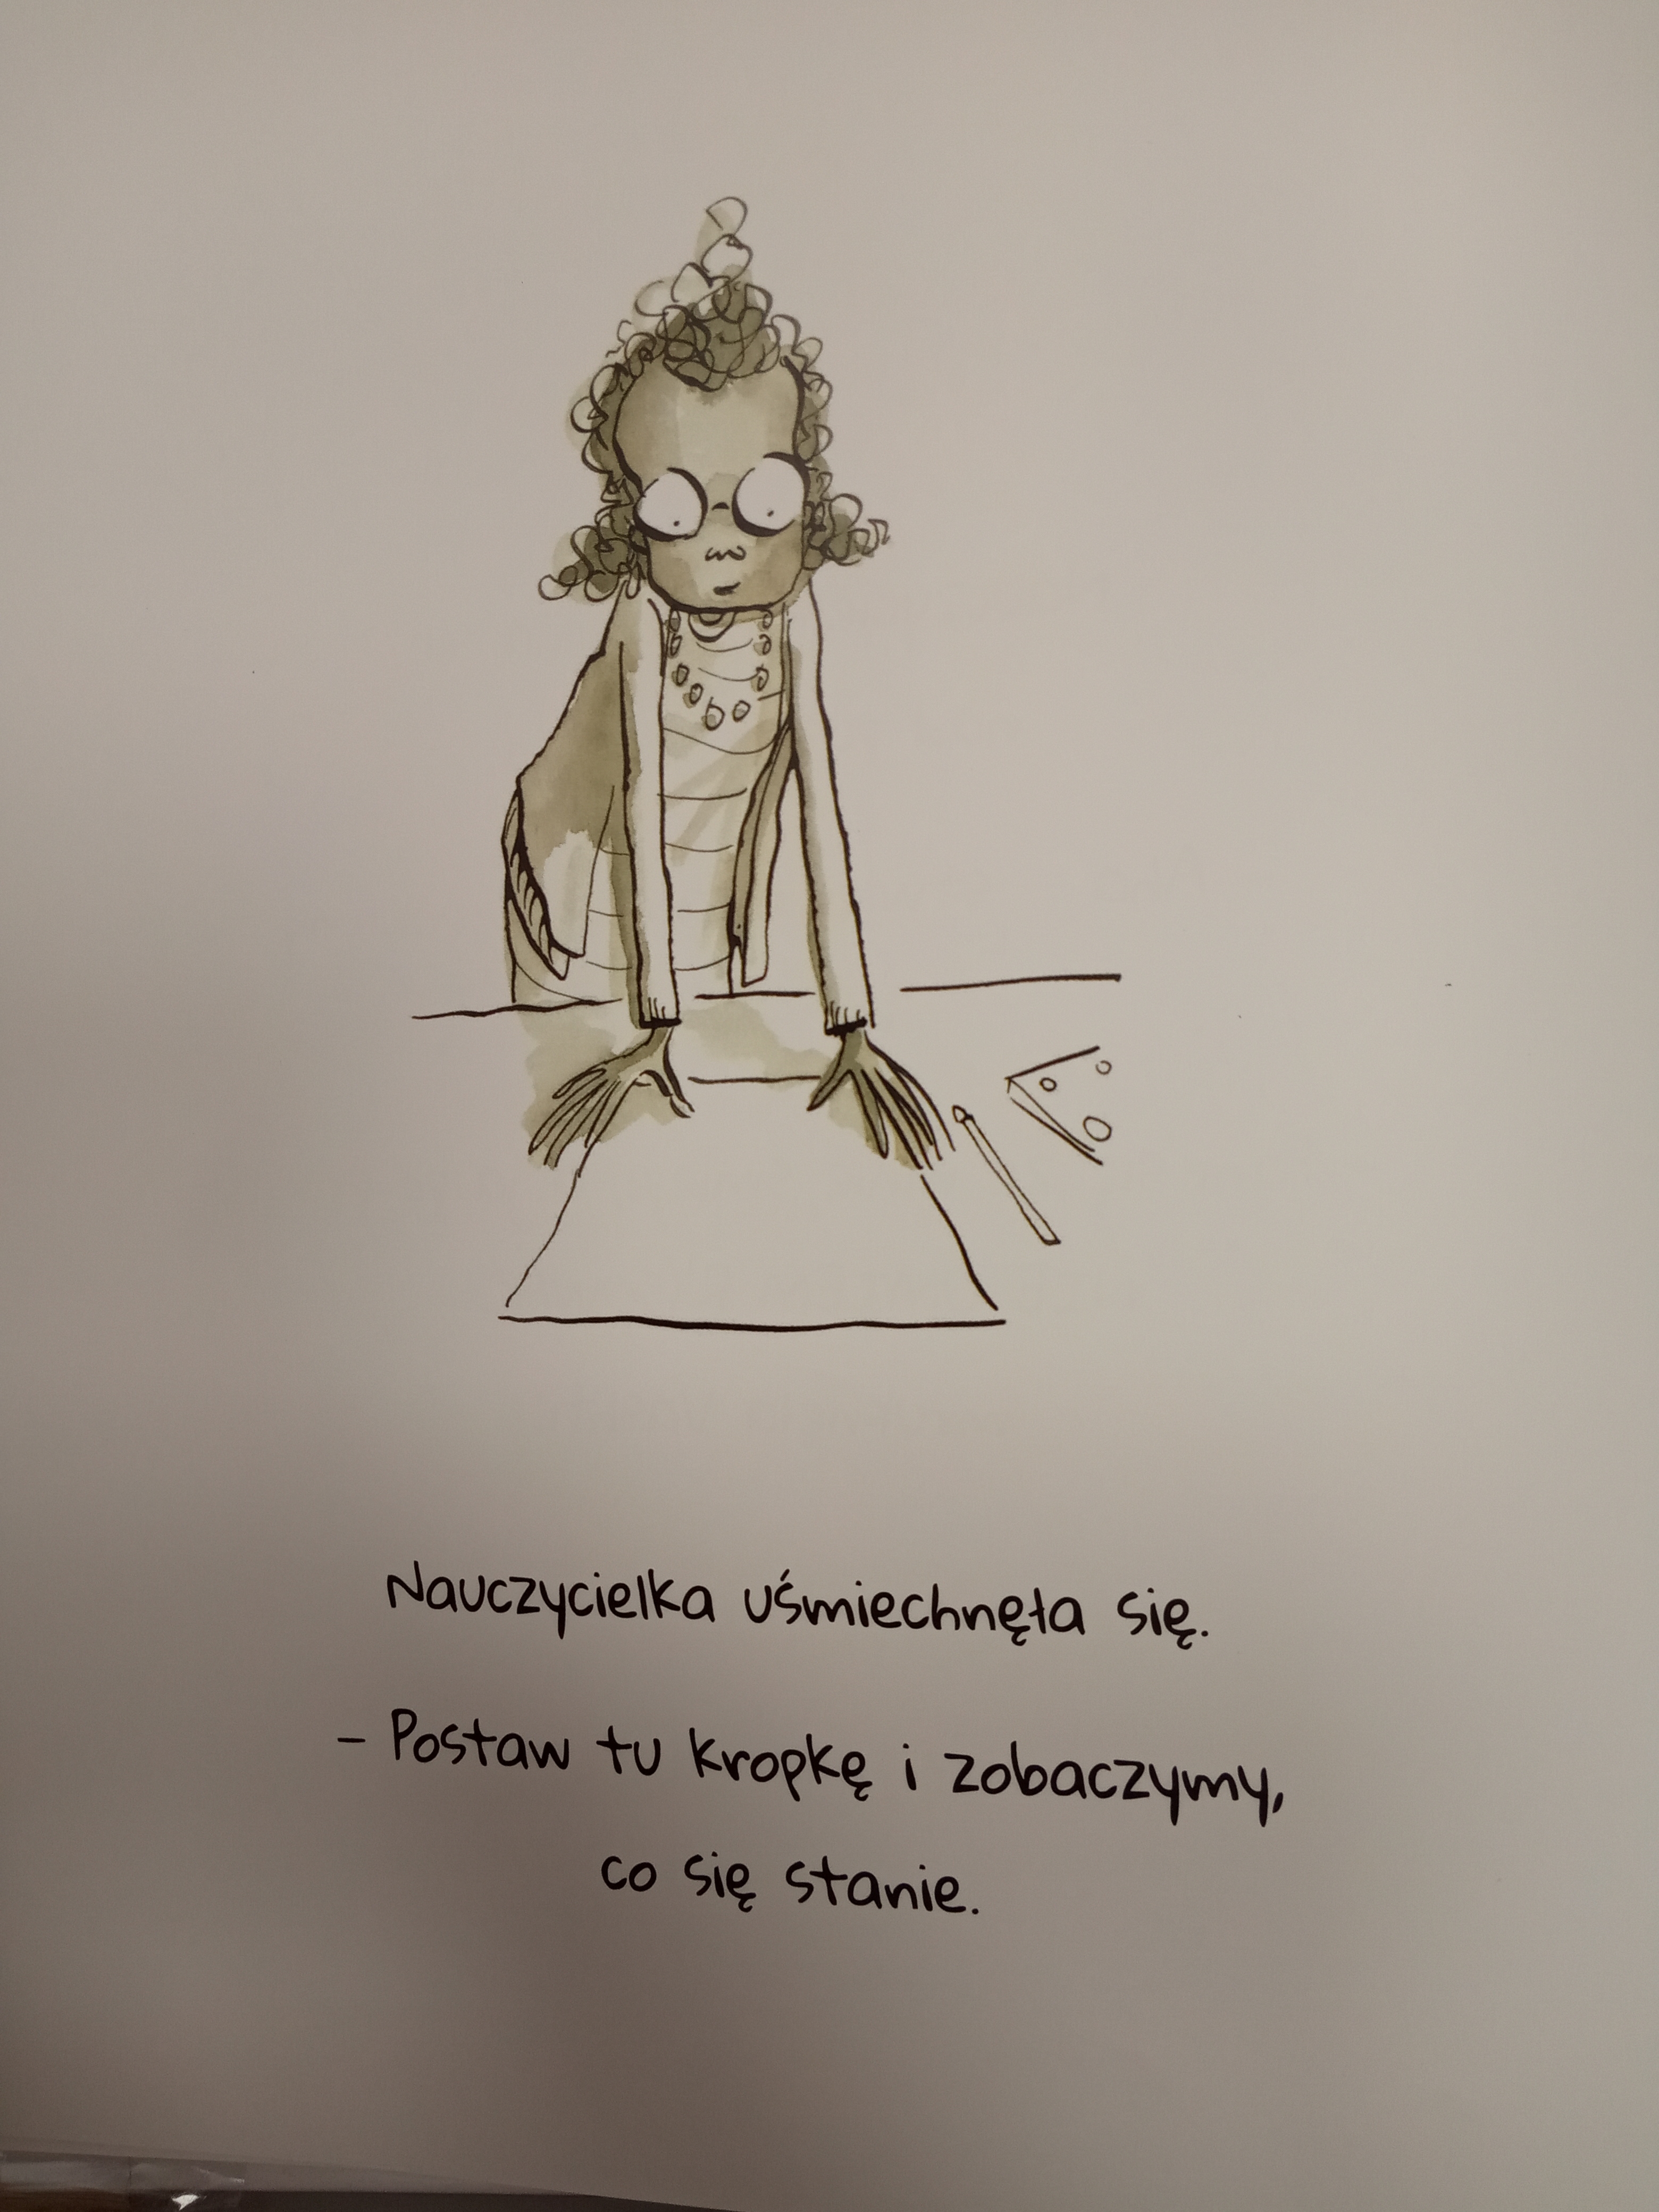 Nauczycielka uśmiechnęła się.
- Postaw tu kropkę i zobaczymy,
co się stanie.